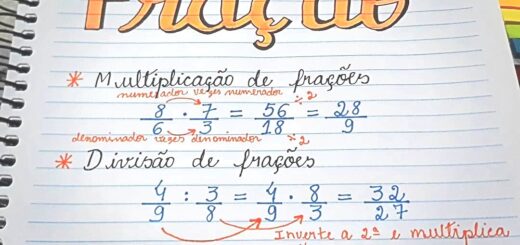 Fração
* Multiplicação de frações
numerador vezes numerador
8/6 · 7/3 = 56/18 = 28/9
÷2
÷2
denominador vezes denominador
* Divisão de frações
4/9 : 3/8 = 4/9 · 8/3 = 32/27
Inverte a 2ª e multiplica